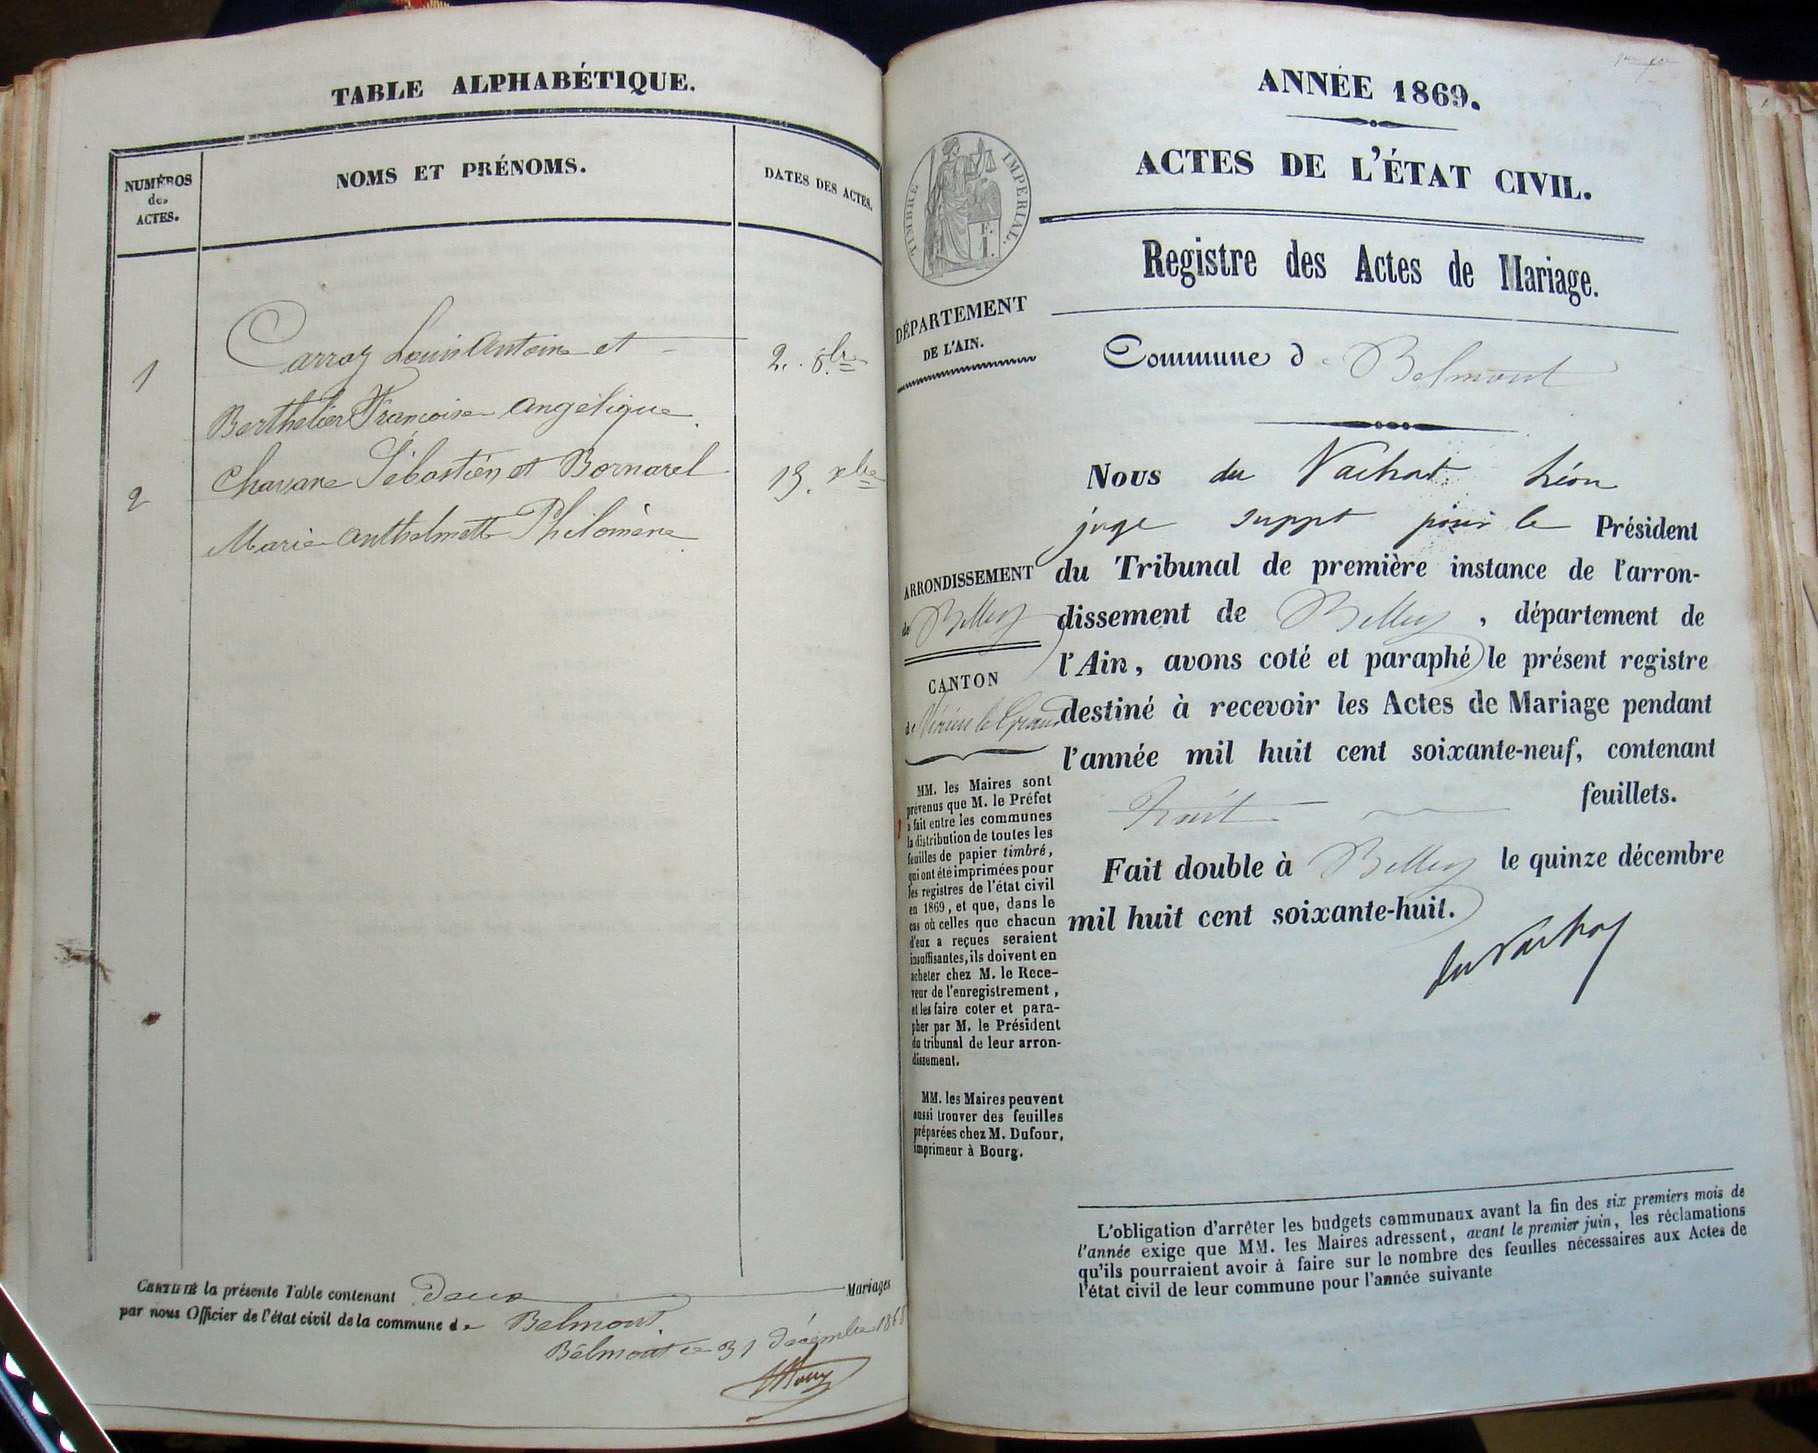 TABLE ALPHABÉTIQUE.
NUMÉROS
des
ACTES.
NOMS ET PRÉNOMS.
DATES DES ACTES.
1
Carroz Louis Antoine et
2. 8bre
Berthelier Françoise Angélique
2
Chavane Sébastien et Bornarel
13. xbre
Marie Anthelmette Philomène
CERTIFIÉ la présente Table contenant deux Mariages
par nous Officier de l'état civil de la commune de Belmont
Belmont ce 31 décembre 1868
ANNÉE 1869.
ACTES DE L'ÉTAT CIVIL.
TIMBRE IMPÉRIAL.
F.
1.
Registre des Actes de Mariage.
DÉPARTEMENT
DE L'AIN.
Commune de Belmont
Nous du Vachat Léon
juge suppt pour le Président
du Tribunal de première instance de l'arron-
dissement de Belley, département de
l'Ain, avons coté et paraphé le présent registre
destiné à recevoir les Actes de Mariage pendant
l'année mil huit cent soixante-neuf, contenant
huit feuillets.
Fait double à Belley le quinze décembre
mil huit cent soixante-huit.
du Vachat
ARRONDISSEMENT
de Belley
CANTON
de Virieu le Grand
MM. les Maires sont
prévenus que M. le Préfet
a fait entre les communes
la distribution de toutes les
feuilles de papier timbré,
qui ont été imprimées pour
les registres de l'état civil
en 1869, et que, dans le
cas où celles que chacun
d'eux a reçues seraient
insuffisantes, ils doivent en
acheter chez M. le Rece-
veur de l'enregistrement,
et les faire coter et para-
pher par M. le Président
du tribunal de leur arron-
dissement.
MM. les Maires peuvent
aussi trouver des feuilles
préparées chez M. Dufour,
imprimeur à Bourg.
L'obligation d'arrêter les budgets communaux avant la fin des six premiers mois de
l'année exige que MM. les Maires adressent, avant le premier juin, les réclamations
qu'ils pourraient avoir à faire sur le nombre des feuilles nécessaires aux Actes de
l'état civil de leur commune pour l'année suivante